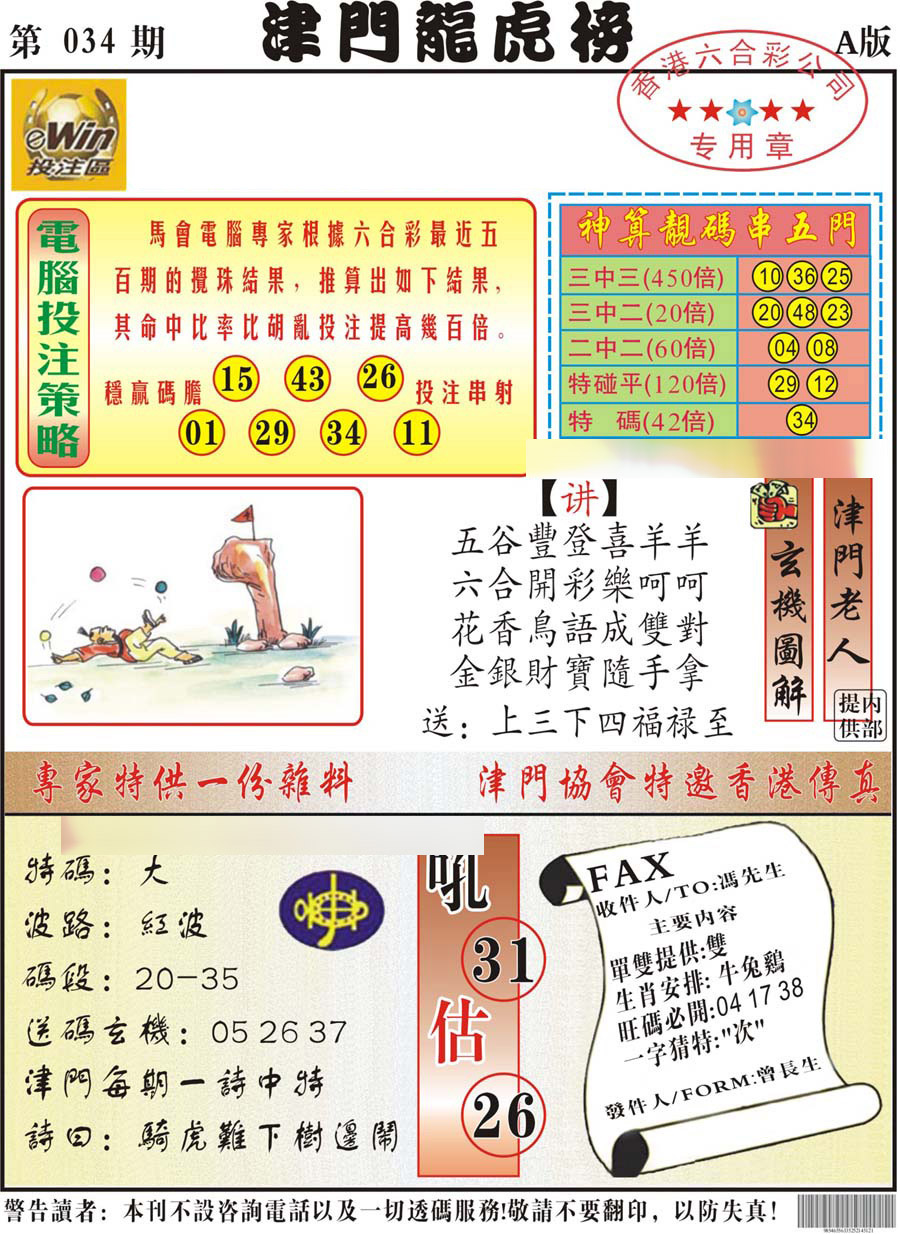 第 034 期
津門龍虎榜
A版
香港六合彩公司
专用章
eWin
投注區
電腦投注策略
馬會電腦專家根據六合彩最近五
百期的攪珠結果，推算出如下結果，
其命中比率比胡亂投注提高幾百倍。
穩贏碼膽 15 43 26 投注串射
01 29 34 11
神算靚碼串五門
三中三(450倍) 10 36 25
三中二(20倍) 20 48 23
二中二(60倍) 04 08
特碰平(120倍) 29 12
特 碼(42倍) 34
【讲】
五谷豐登喜羊羊
六合開彩樂呵呵
花香鳥語成雙對
金銀財寶隨手拿
送：上三下四福禄至
玄機圖解
津門老人
内部
提供
專家特供一份雜料
津門協會特邀香港傳真
特碼：大
波路：紅波
碼段：20-35
送碼玄機：05 26 37
津門每期一詩中特
詩曰：騎虎難下樹邊鬧
吼
31
估
26
FAX
收件人/TO:馮先生
主要内容
單雙提供:雙
生肖安排: 牛兔鷄
旺碼必開:04 17 38
一字猜特:"次"
發件人/FORM:曾長生
警告讀者：本刊不設咨詢電話以及一切透碼服務!敬請不要翻印，以防失真!